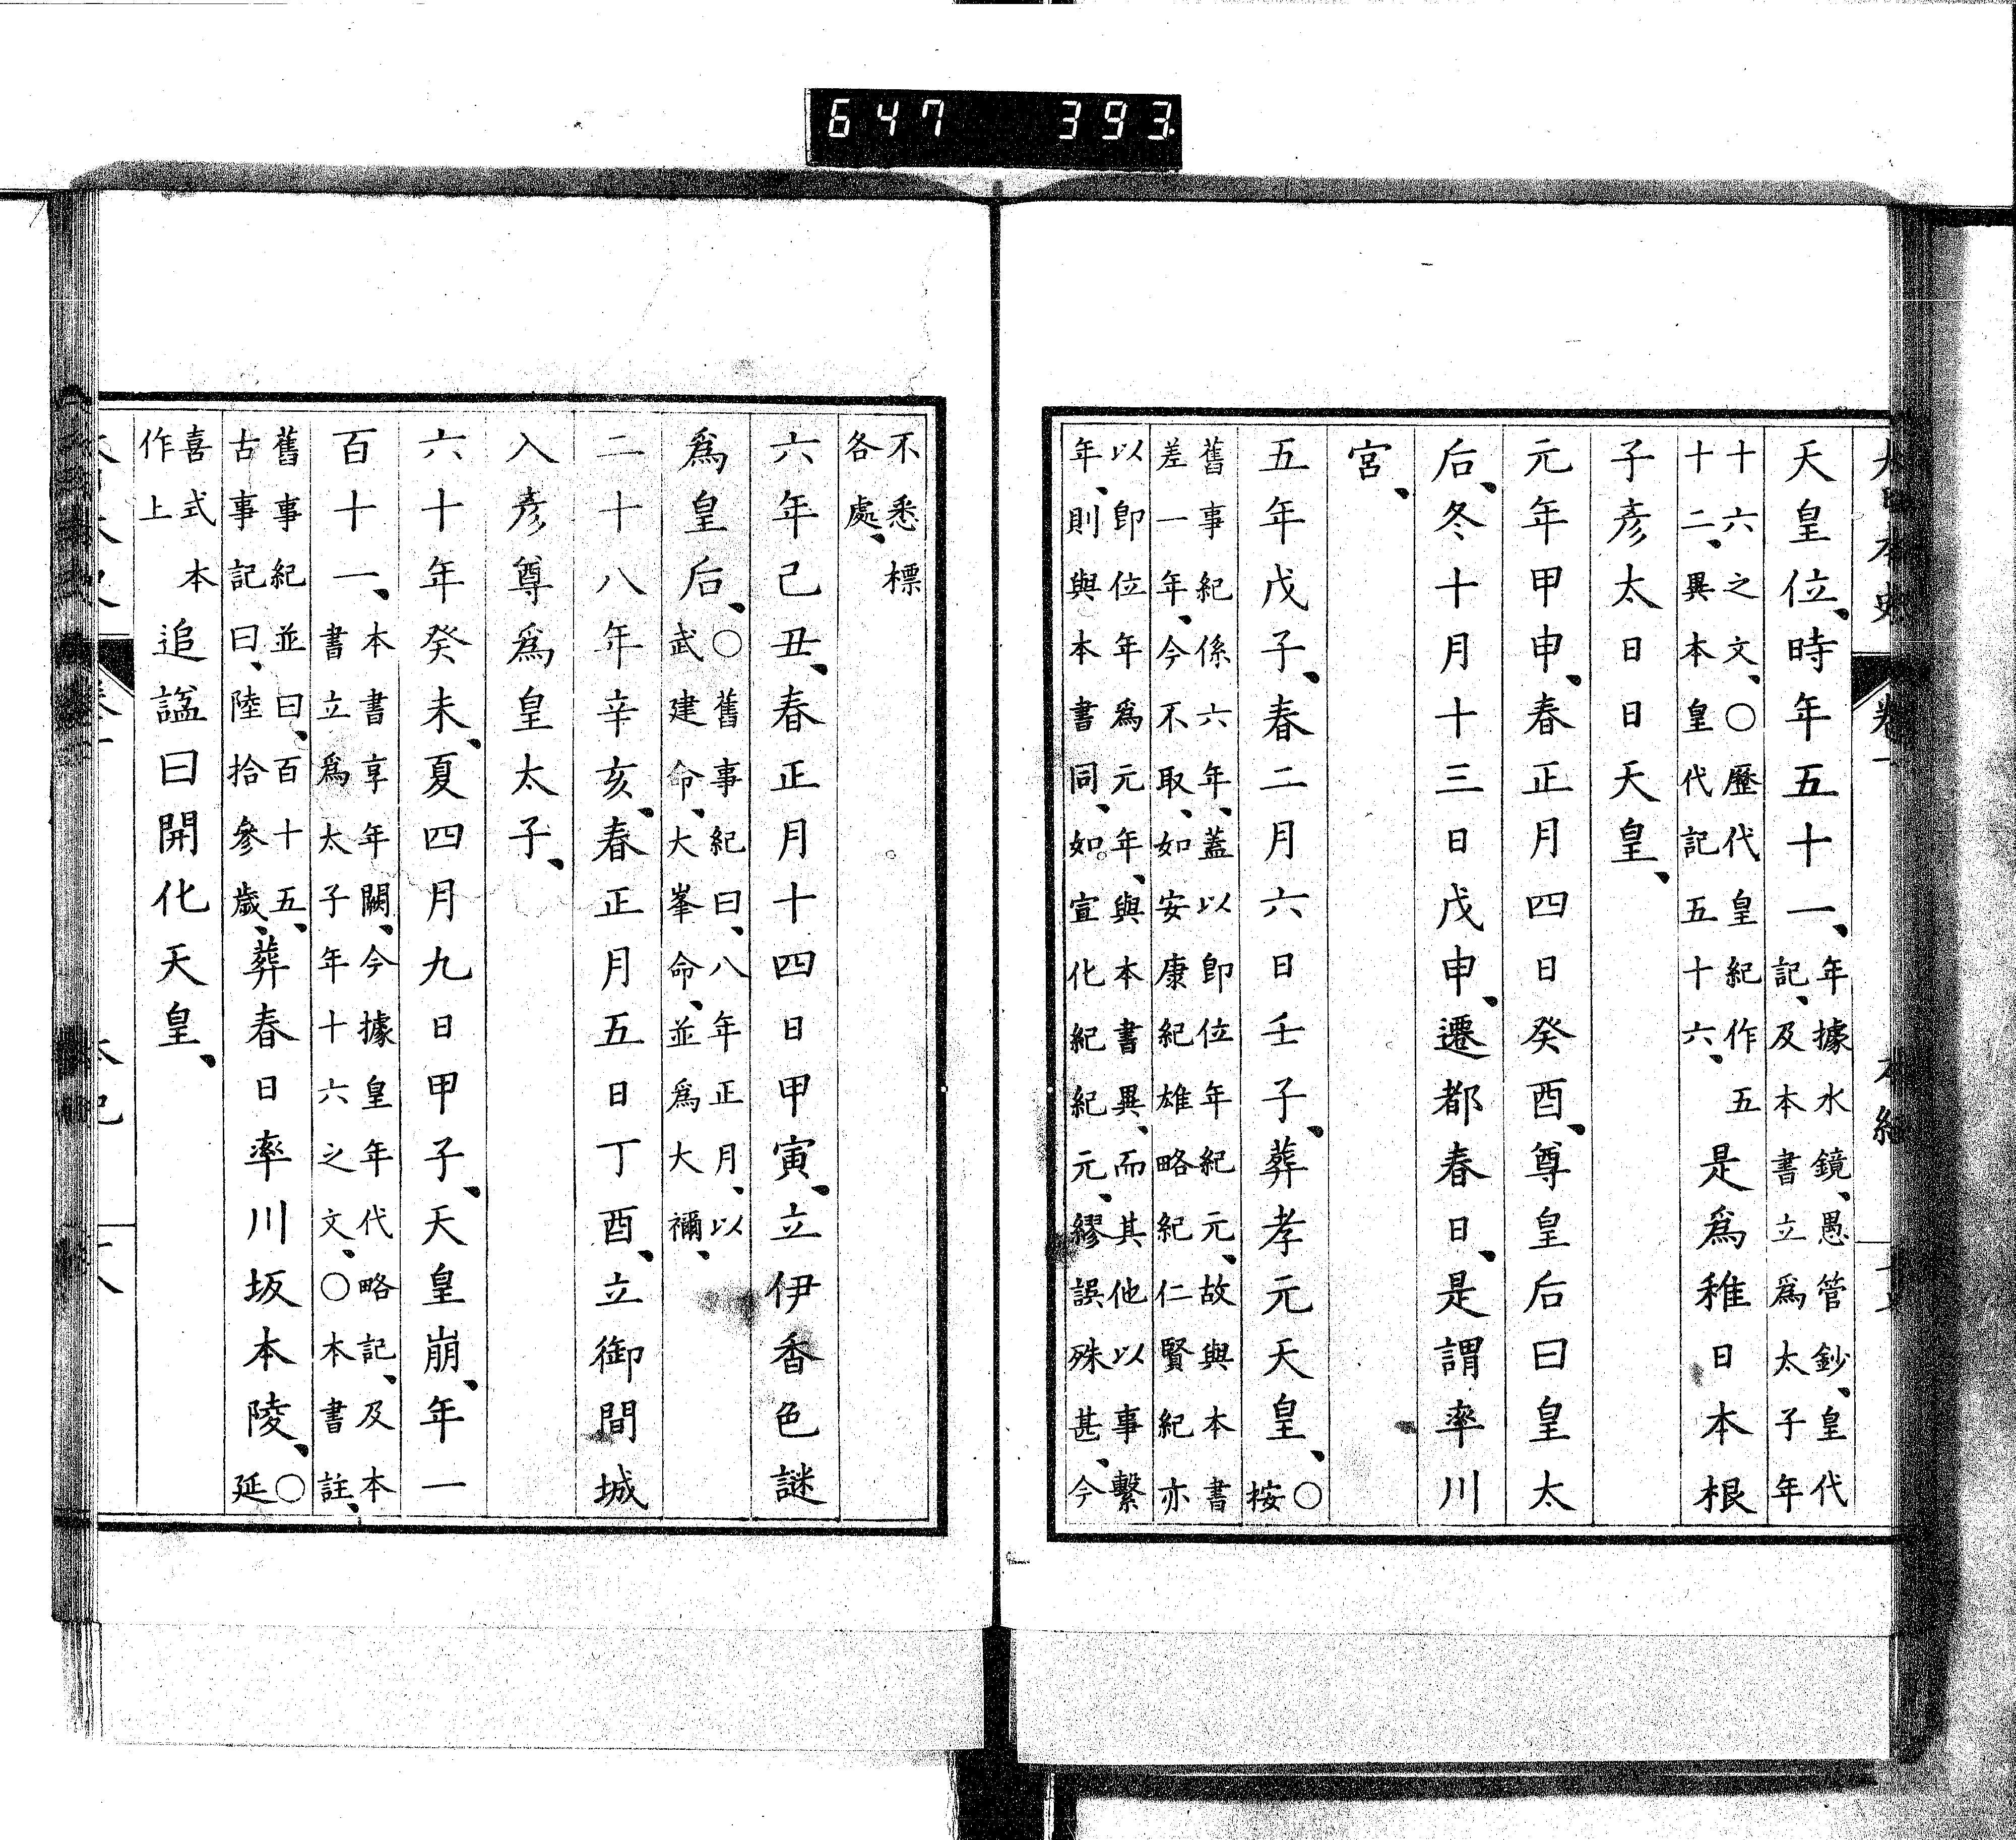 647 393
大日本史 卷一 本紀
天皇位、時年五十一、年據水鏡、愚管鈔、皇代記、及本書立爲太子年
十六之文、〇歷代皇紀作五十二、異本皇代記五十六、是爲稚日本根
子彥太日日天皇、
元年甲申、春正月四日癸酉、尊皇后曰皇太
后、冬十月十三日戊申、遷都春日、是謂率川
宮、
五年戊子、春二月六日壬子、葬孝元天皇、〇按
舊事紀係六年、蓋以卽位年紀元、故與本書差一年、今不取、如安康紀雄略紀仁賢紀亦
以卽位年爲元年、與本書異、而其他以事繫年、則與本書同、如宣化紀紀元、繆誤殊甚、今
不悉標各處、
六年己丑、春正月十四日甲寅、立伊香色謎
爲皇后、〇舊事紀曰、八年正月、以武建命、大峯命、並爲大禰、
二十八年辛亥、春正月五日丁酉、立御間城
入彥尊爲皇太子、
六十年癸未、夏四月九日甲子、天皇崩、年一
百十一、本書享年闕、今據皇年代略記、及本書立爲太子年十六之文、〇本書註、
舊事紀並曰、百十五、古事記曰、陸拾參歲、葬春日率川坂本陵、〇延
喜式本作上追諡曰開化天皇、